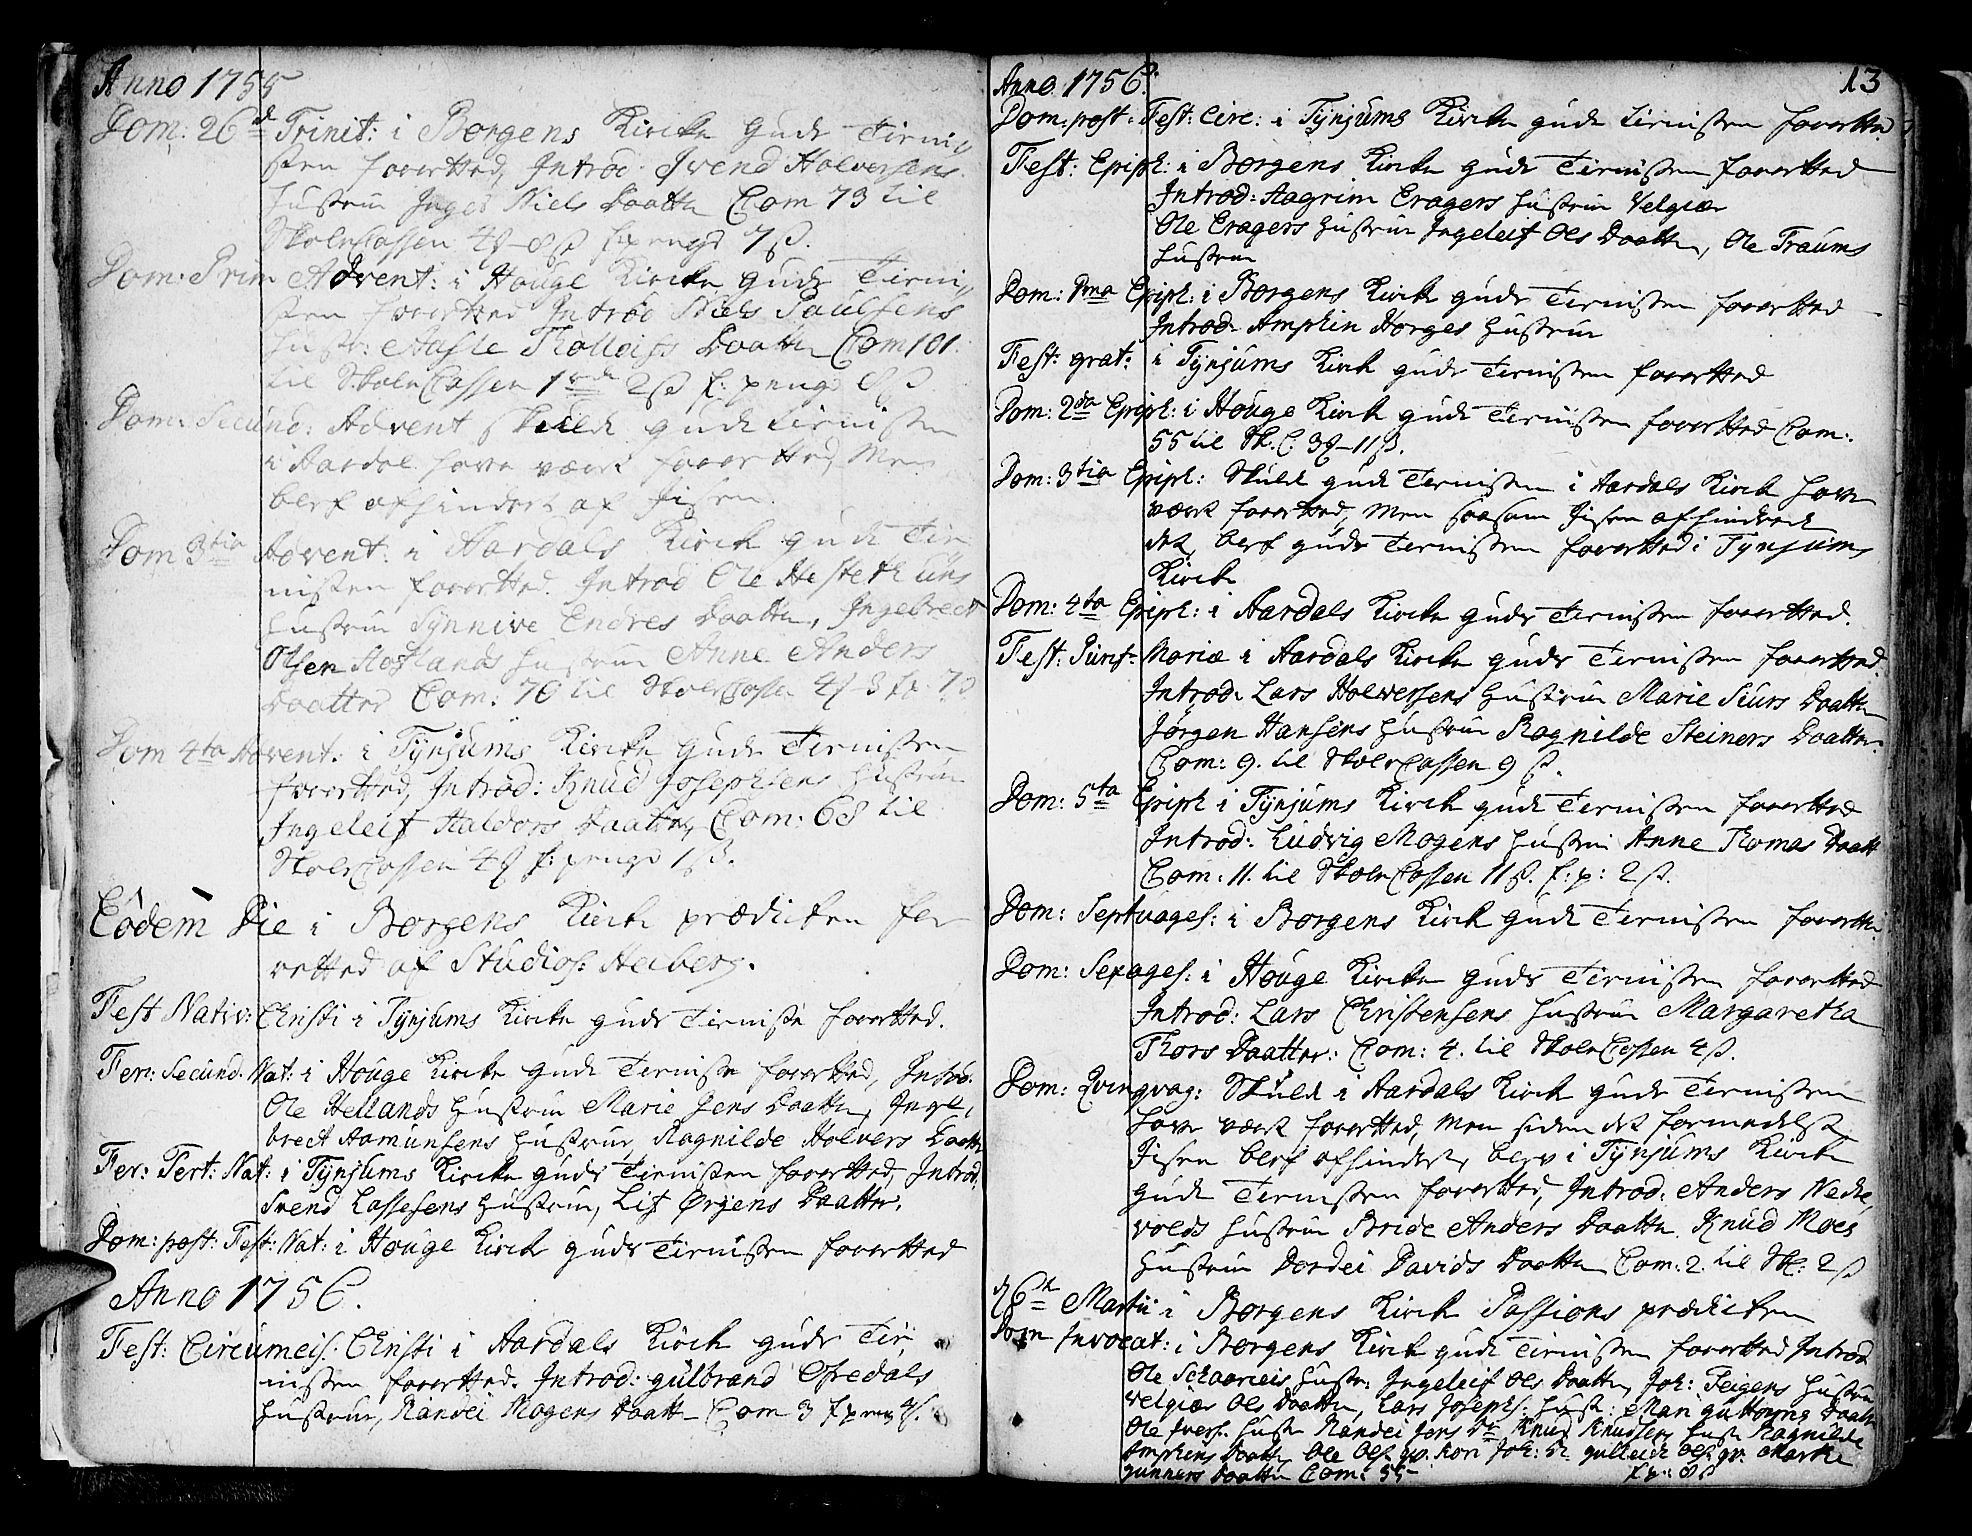 Anno 1755
Dom: 26d Trinit: i Borgens Kircke Guds Tieni,
sten forretted, Introd: Svend Holversens
Hustrue Inger Niels Daatter Com 73 til
SkoleCassen 4 8 ß
Dom: Prim Advent: i Houge Kircke Guds Tieni,
sten forretted Introd Niels Poulsens
Hustr: Aasle Trolleifs Daatter Com 101:
til SkoleCassen 1 2 ß
Dom: Secund: Advent skulde guds tienisten
i Aardal have været forretted, Men
blef afhindret af Jisen.
Dom 3tia Advent: i Aardals Kirck guds Tie
nisten forretted. Introd Ole Hestethuns
Hustrue Synnive Endres Daatter, Ingebrect
Olsen Hofslands Hustrue Anne Anders
Daatter Com: 70 til SkoleCassen
Dom 4ta Advent: i Tynjums Kircke Guds Tienisten
forretted, Introd: Knud Josephsens Hustrue
Ingeleif Haldors Daatter, Com: 68 til
SkoleCassen
Eodem Die i Borgens Kirck prædicken for
retted af Studios: Heiberg.
Fest Nativ: Christi i Tynjums Kircke guds Tieniste forretted.
Fer: Secund. Nat: i Houge Kircke guds Tieniste forretted, Introd.
Ole Hellands Hustrue Marie Jens Daatter, Inge,
brect Aamunsens Hustrue Ragnilde Holvers Daatter
Fer: Tert: Nat: i Tynjums Kircke guds Tienisten forretted, Introd.
Svend Lassesens Hustrue, List Ørjens Daatter.
Dom: post: Fest: Nat: i Houge Kirck guds Tienisten forretted
Anno 1756.
Fest: Circumcis: Christi i Aardals Kirck guds Tie,
nisten forretted. Introd: gulbrand Ofredals
Hustrue, Randei Mogens Daatter Com 3
Anno 1756. 13
Dom: post: Fest: Circ: i Tynjums Kircke guds tienisten forretted
Fest: Epiph: i Borgens Kircke guds Tienisten forretted
Introd: Aagrim Cragers Hustrue Velgiær
Ole Cragers Hustrue Ingeleif Ols Daatter, Ole Traums
Hustrue
Dom: 1ma Epiph: i Borgens Kirck guds Tienisten forretted
Introd: Amphin Horges Hustrue
Fest: grat: i Tynjums Kirck guds Tienisten forretted
Dom: 2da Epiph: i Houge Kirck guds Tienisten forretted Com:
55 til Sk: C: 3 11 ß.
Dom: 3tia Epiph: Skulde guds Tienisten i Aardals Kirck have
været forretted, Men saasom Jisen afhindrede
det, blef guds Tienisten forretted i Tynjums
Kircke
Dom: 4ta Epiph: i Aardals Kircke guds Tienisten forretted.
Fest: Purif: Mariæ i Aardals Kircke guds Tienisten forretted.
Introd: Lars Holversens Hustrue Marie Siurs Daatter
Jørgen Hansens Hustrue Ragnilde Steiners Daatter.
Com: 9. til SkoleCassen 9 ß.
Dom: 5ta Epiph i Tynjums Kirck guds Tienisten forretted
Introd: Ludvig Mogens Hustrue Anne Thomas Daatt
Com: 11. til SkoleCassen 11 ß. f: p: 2 ß.
Dom: Septuages: i Borgens Kirck guds Tienisten forrette.
Dom: Sexages: i Houge Kircke guds Tienisten forretted
Introd: Lars Christensens Hustrue Margaretha
Thors Daatter: Com: 4. til SkoleCassen 4 ß.
Dom: Qvinqvag: Skulde i Aardals Kirck guds Tienisten
have været forretted, Men siden det formedelst
Jisen blef afhindret, blev i Tynjums Kircke
guds Tienisten forretted, Introd: Anders Nedre,
volds Hustrue Bride Anders Daatter. Knud Moes
Hustrue Dordei Davids Daatter Com: 2. til Sk: 2 ß
Martii i Borgens Kirck Passions prædicken
Dom Invocat: i Borgens Kirck guds Tienisten forretted Introd
Ole Schaarieis Hustr: Ingeleif Ols Daatter, Joh: Teigens Hustrue
Velgiær Ols Daatter, Lars Josephs: Hust: Mari guttorms Daatt
Ole Ivers: Hustr Randei Jens Dr Knud Knudsens Hustr Ragnilde
Amphins Daatter Ole Ols: qv. Kari Joh: Dr gulleik Ols: qv. Marthe
gunners Daatter Com: 55 f: p: 8 ß